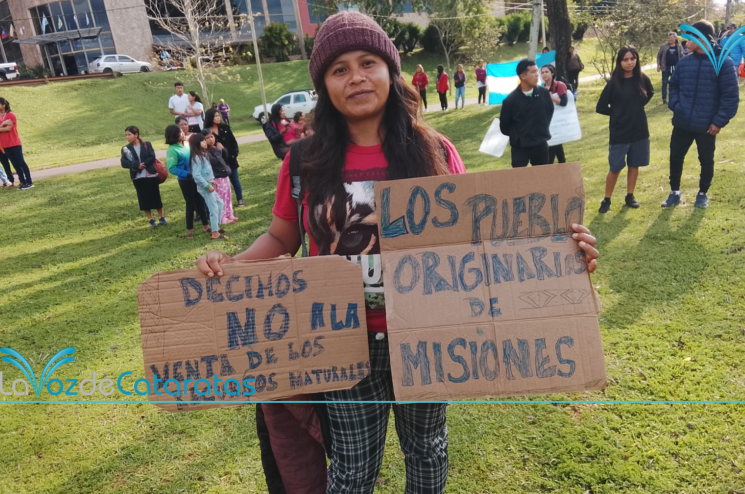 DECIMOS
NO A LA
VENTA DE LOS
NATURALES
LOS PUEBLO
ORIGINARIOS
DE
MISIÓNES
LaVozdeCataratas